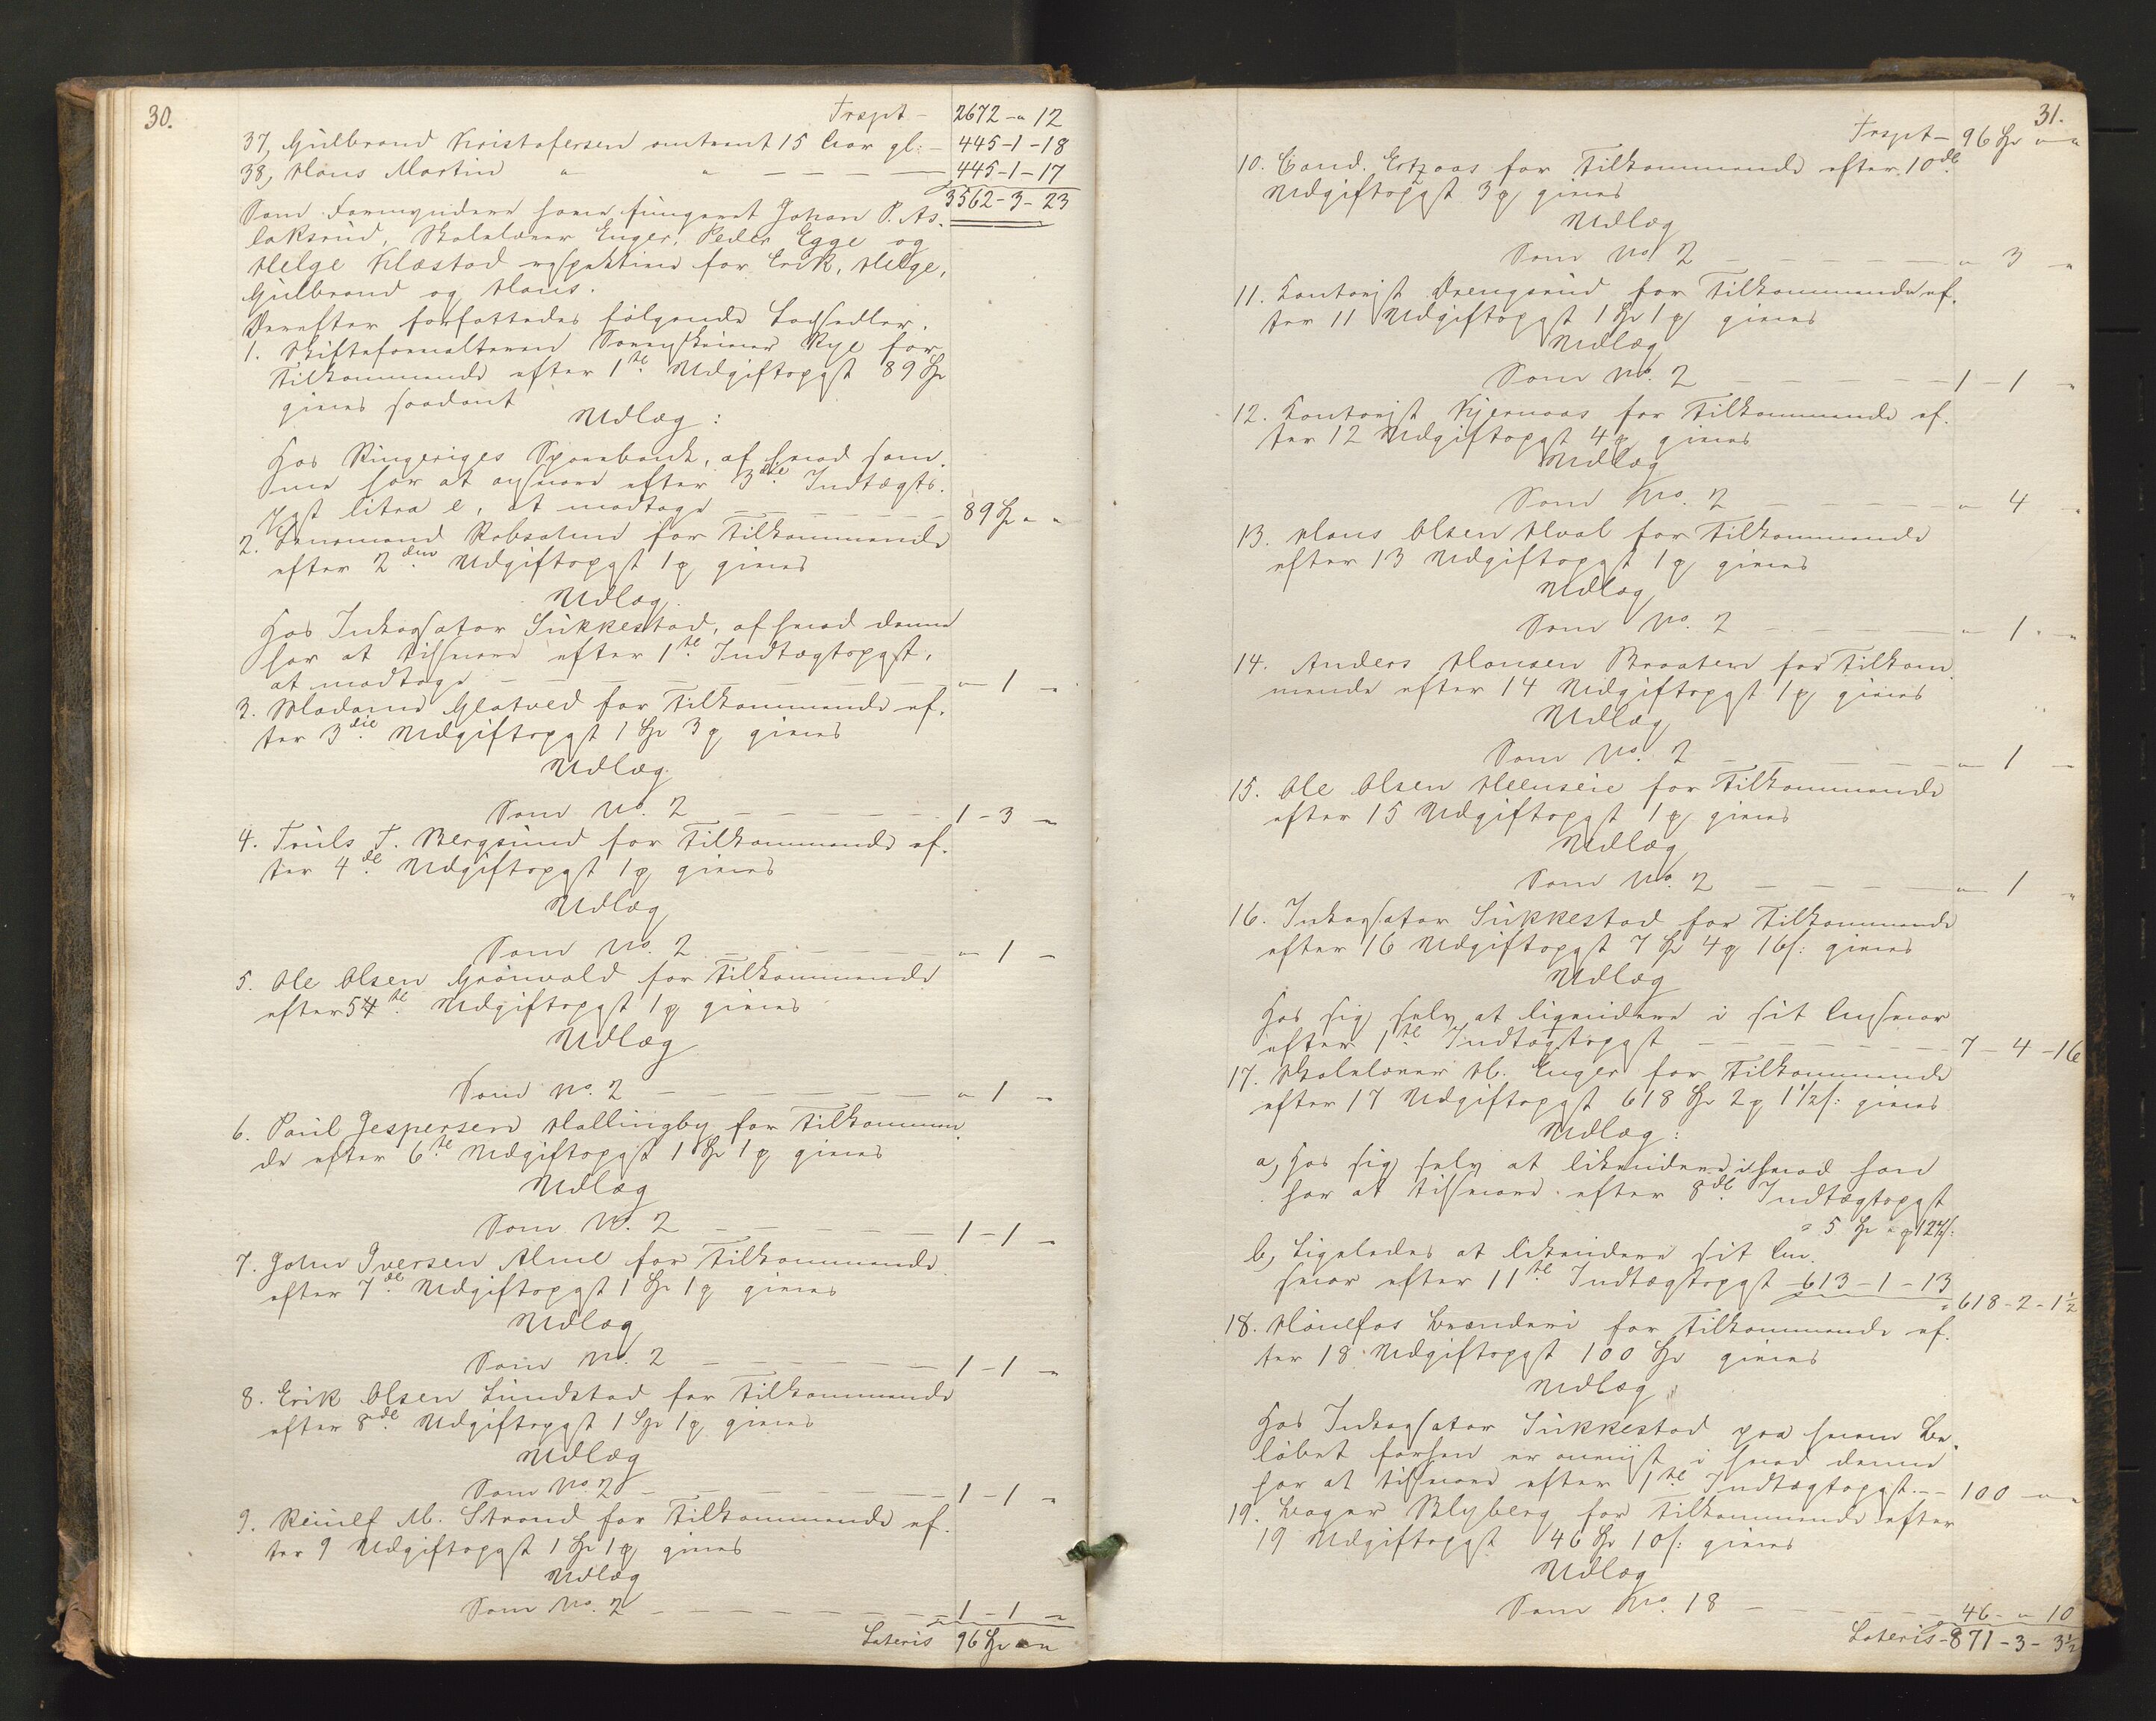 30.
Trspt - 2672 - " 12
37, Gulbrand Kristofersen omtrent 15 Aar gl: - 445-1-18
38, Hans Martin " " — — — — 445-1-17
3562-3-23
Som Formyndere have fungeret Johan P. As-
laksrud, Skolelærer Enger, Peder Egge og
Helge Klæstad respektive for Erik, Helge,
Gulbrand og Hans.
Derefter forfattedes følgende Lodsedler.
1. Skifteforvalteren Sorenskriver Rye for
Tilkommende efter 1ste Udgiftspost 89 Spd
gives saadant
Udlæg:
Hos Ringeriges Sparebank, af hvad sam-
me har at ansvare efter 3die Indtægts-
post litra e, at modtage — — — 89 Spd " "
2. Lensmand Robsahm for Tilkommende
efter 2den Udgiftspost 1 ort gives
Udlæg.
Hos Inkassator Sukkestad, af hvad denne
har at tilsvare efter 1ste Indtægtspost,
at modtage — — — — " 1 "
3. Madame Glatved for Tilkommende ef-
ter 3die Udgiftspost 1 Spd 3 ort gives
Udlæg.
Som No. 2 — — — — 1 - 3 "
4. Truls T. Bergsund for Tilkommende ef-
ter 4de Udgiftspost 1 ort gives
Udlæg
Som No. 2 — — — — " 1 "
5. Ole Olsen Grønvold for Tilkommende
efter 5te Udgiftspost 1 ort gives
Udlæg
Som No. 2 — — — — " 1 "
6. Paul Jespersen Hallingby for Tilkommen-
de efter 6te Udgiftspost 1 Spd 1 ort gives
Udlæg
Som No. 2 — — — — 1 - 1 "
7. John Iversen Alme for Tilkommende
efter 7de Udgiftspost 1 Spd 1 ort gives
Udlæg
Som No. 2 — — — — 1 - 1 "
8. Erik Olsen Lundstad for Tilkommende
efter 8de Udgiftspost 1 Spd 1 ort gives
Udlæg
Som No 2 — — — — 1 - 1 "
9. Reiulf M. Strand for Tilkommende ef-
ter 9 Udgiftspost 1 Spd 1 ort gives
Udlæg
Som No. 2 — — — — 1 - 1 "
Lateris 96 Spd " "
31.
Trspt - 96 Spd " "
10. Cand. for Tilkommende efter 10de
Udgiftspost 3 ort gives
Udlæg
Som No. 2 — — — — " 3 "
11. Kontorist Drengsrud for Tilkommende ef-
ter 11 Udgiftspost 1 Spd 1 ort gives
Udlæg
Som No. 2 — — — — 1 - 1 "
12. Kontorist Kjernaas for Tilkommende ef-
ter 12 Udgiftspost 4 ort gives
Udlæg
Som No. 2 — — — — " 4 "
13. Hans Olsen Hval for Tilkommende
efter 13 Udgiftspost 1 ort gives
Udlæg
Som No. 2 — — — — " 1 "
14. Anders Hansen Braaten for Tilkom-
mende efter 14 Udgiftspost 1 ort gives
Udlæg
Som No. 2 — — — — " 1 "
15. Ole Olsen Heenseie for Tilkommende
efter 15 Udgiftspost 1 ort gives
Udlæg
Som No. 2 — — — — " 1 "
16. Inkassator Sukkestad for Tilkommende
efter 16 Udgiftspost 7 Spd 4 ort 16 s: gives
Udlæg
Hos sig selv at liqvidere i sit Ansvar
efter 1ste Indtægtspost — — — 7 - 4 - 16
17. Skolelærer H. Enger for Tilkommende
efter 17 Udgiftspost 618 Spd 2 ort 1 1/2 s: gives
Udlæg:
a, Hos sig selv at likvidere i hvad han
har at tilsvare efter 8de Indtægtspost
5 Spd " ort 12½ s:
b, Ligeledes at likvidere sit An-
svar efter 11te Indtægtspost 613 - 1 - 13
618 - 2 - 1½
18. Hønefos Brænderi for Tilkommende ef-
ter 18 Udgiftspost 100 Spd gives
Udlæg
Hos Inkassator Sukkestad paa hvem Be-
løbet forhen er anvist i hvad denne
har at tilsvare efter 1ste Indtægtspost - - 100 - " "
19. Bager Blyberg for Tilkommende efter
19 Udgiftspost 46 Spd 10 s: gives
Udlæg
Som No. 18 — — — — 46 - " 10
Lateris - 871 - 3 - 3½